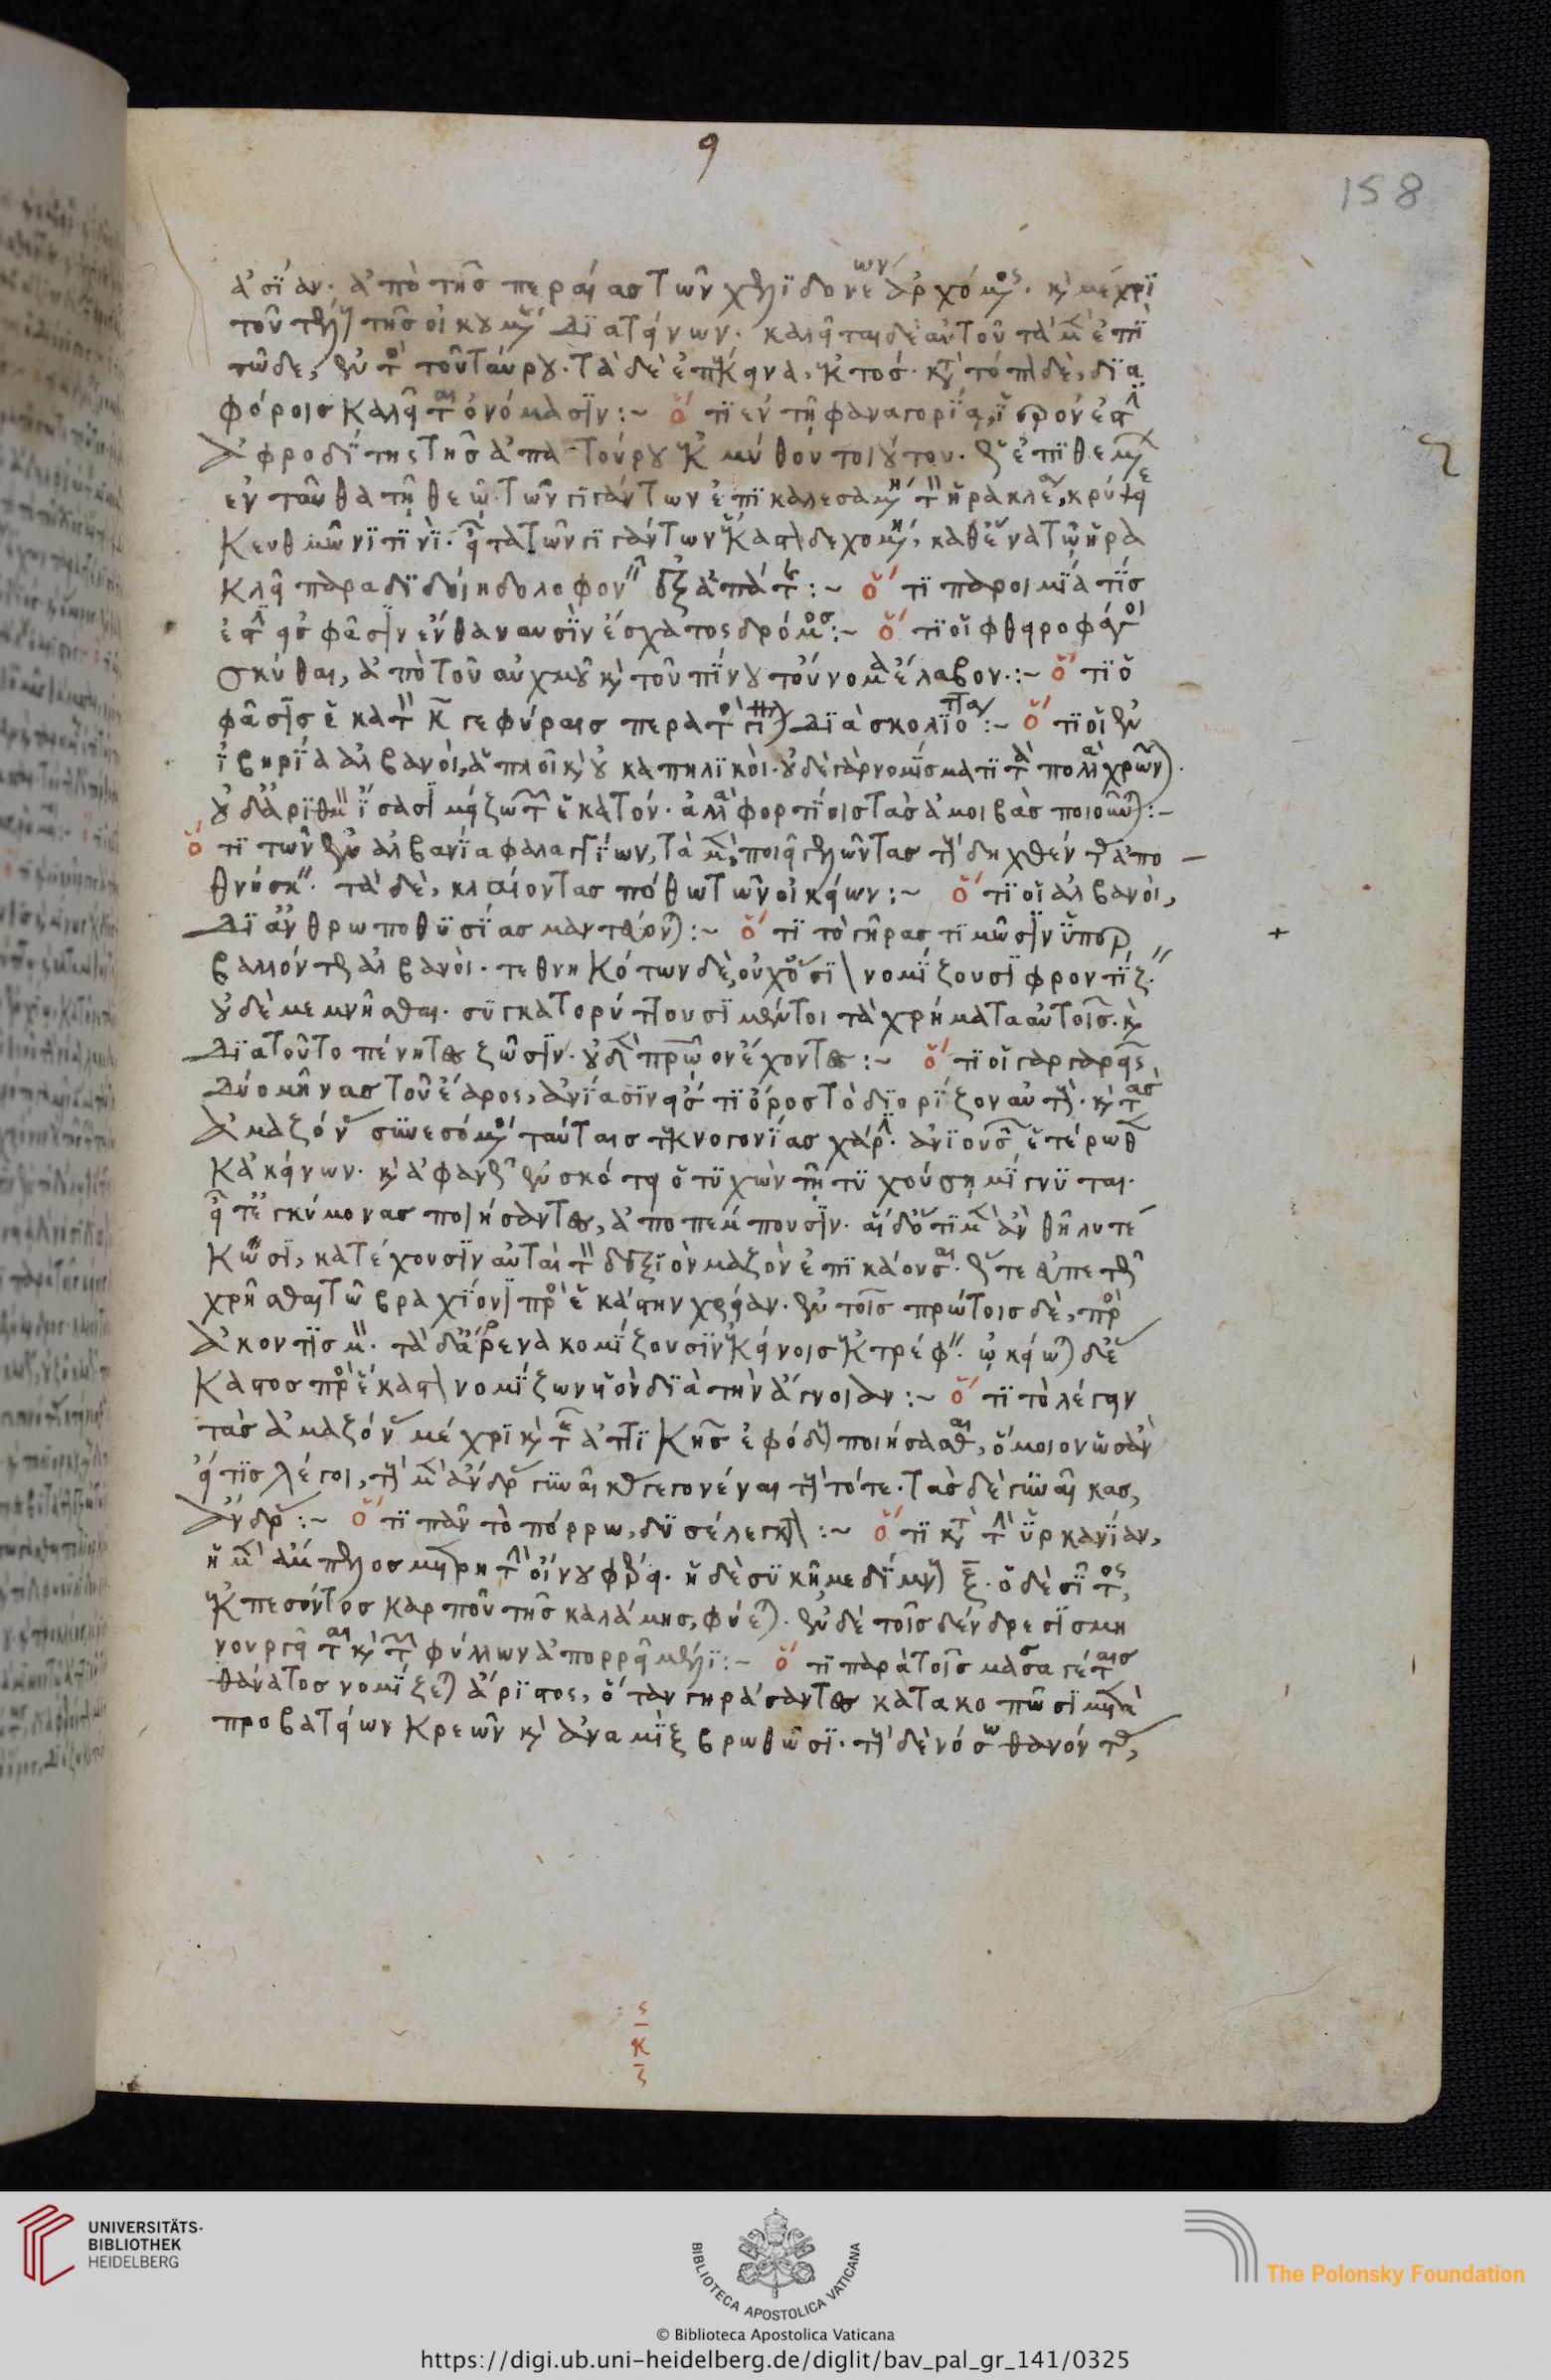 158
ἀσίαν· ἀπὸ τῆς περαίας τῶν χελιδονέων ἀρχόμενος· καὶ μέχρι
τοῦ τέλους τῆς οἰκουμένης διατείνων· καλεῖται δὲ αὐτοῦ τὰ μὲν ἐπὶ
τῶδε, ἐντὸς τοῦ ταύρου· τὰ δὲ ἐπέκεινα, ἐκτός· κατὰ τόπον δὲ, δια
φόροις καλεῖται ὀνόμασιν :~ ὅτι ἐν τῇ φαναγορίᾳ, ἱερόν ἐστιν
ἀφροδίτης τῆς ἀπατούρου ἐκ μύθου τοιούτου· ἐπιθεμένων
ἐνταῦθα τῇ θεῷ τῶν γιγάντων ἐπικαλεσαμένη τὸν ἡρακλέα, κρύπτει
κευθμῶνι τινὶ· εἶτα τῶν γιγάντων ἕκαστον δεχομένη, καθ' ἕνα τῷ ἡρα
κλεῖ παραδίδοι δολοφονεῖν ἐξ ἀπάτης :~ ὅτι παροιμία τίς
ἐστιν εἰς φᾶσιν ἔνθα ναυσὶν ἔσχατος δρόμος :~ ὅτι οἱ φθειροφάγοι
σκύθαι, ἀπὸ τοῦ αὐχμοῦ καὶ τοῦ πίνου τοὔνομα ἔλαβον :~ ὅτι ὁ
φᾶσις ἑκατὸν κ̅ γεφύραις περατὸς γίνεται διὰ σκολιότητα :~ ὅτι οἱ ἐν
ἰβηρίᾳ ἀλβανοὶ, ἁπλοῖ καὶ οὐ καπηλικοὶ· οὐδὲ γὰρ νομίσματι τὰ πολλὰ χρῶνται·
οὐδ' ἀριθμὸν ἴσασι μείζω τῶν ἑκατόν· ἀλλὰ φορτίοις τὰς ἀμοιβὰς ποιοῦνται :-
ὅτι τῶν ἐν ἀλβανίᾳ φαλαγγίων, τὰ μὲν, ποιεῖ γελῶντας τοὺς δηχθέντας ἀπο
θνήσκειν· τὰ δὲ, κλαίοντας πόθω τῶν οἰκείων :~ ὅτι οἱ ἀλβανοὶ,
δι' ἀνθρωποθυσίας μαντεύονται :~ ὅτι τὸ γῆρας τιμῶσιν ὑπερ
βαλλόντως ἀλβανοὶ· τεθνηκότων δὲ, οὐχ ὅσιον νομίζουσι φροντίζειν
οὐδὲ μεμνῆσθαι· συγκατορύττουσι μέντοι τὰ χρήματα αὐτοῖς· καὶ
διατοῦτο πένητες ζῶσιν· οὐδὲν πατρῷον ἔχοντες :~ ὅτι οἱ γαργαρεῖς
δύο μῆνας τοῦ ἔαρος, ἀνίασιν εἴς τι ὄρος τὸ διορίζον αὐτοὺς· καὶ τὰς
ἀμαζόνας συνεσόμενοι ταύταις τεκνογονίας χάριν· ἀνιούσας ἑτέρωθεν
κἀκείνων· καὶ ἀφανεῖς ἐν σκότει ὁ τυχὼν τῇ τυχούσῃ μίγνυται·
εἶτ' ἐγκύμονας ποιήσαντες, ἀποπέμπουσιν· αἱ δ' ὅτι μὲν ἂν θῆλυ τέ
κωσι, κατέχουσιν αὐταὶ· τὸν δεξιὸν μαζὸν ἐπικάουσαι· ὥστε εὐπετῶς
χρῆσθαι τῷ βραχίονι πρὸς ἑκάστην χρείαν· ἐν τοῖς πρώτοις δὲ, πρὸς
ἀκοντισμὸν· τὰ δ' ἄρρενα κομίζουσιν ἐκείνοις ἐκτρέφειν· ᾠκείωται δὲ
ἕκαστος πρὸς ἕκαστον νομίζων υἱὸν διὰ τὴν ἄγνοιαν :~ ὅτι τὸ λέγειν
τὰς ἀμαζόνας μέχρι καὶ τῆς ἀττικῆς ἐφόδους ποιήσασθαι, ὅμοιον ὡσὰν
εἴ τις λέγοι, τοὺς μὲν ἄνδρας γυναῖκας γεγονέναι τοὺς τότε· τὰς δὲ γυναῖκας,
ἄνδρας :~ ὅτι πᾶν τὸ πόρρω, δυσέλεγκτον :~ ὅτι κατὰ τὴν ὑρκανίαν,
ἡ μὲν ἄμπελος μετρητὴν οἴνου φέρει· ἡ δὲ συκῆ, μεδίμνους ξ̅· ὁ δὲ σῖτος,
ἐκπεσόντος καρποῦ τῆς καλάμης, φύεται· ἐν δὲ τοῖς δένδρεσι σμη
νουργεῖται καὶ τῶν φύλλων ἀπορρεῖ μέλι :~ ὅτι παρὰ τοῖς μασσαγέταις
θάνατος νομίζεται ἄριστος, ὅταν γηράσαντες κατακοπῶσι μετὰ
προβατείων κρεῶν καὶ ἀναμὶξ βρωθῶσι· τοὺς δὲ νόσῳ θανόντας,
UNIVERSITÄTS-
BIBLIOTHEK
HEIDELBERG
BIBLIOTECA APOSTOLICA VATICANA
The Polonsky Foundation
© Biblioteca Apostolica Vaticana
https://digi.ub.uni-heidelberg.de/diglit/bav_pal_gr_141/0325